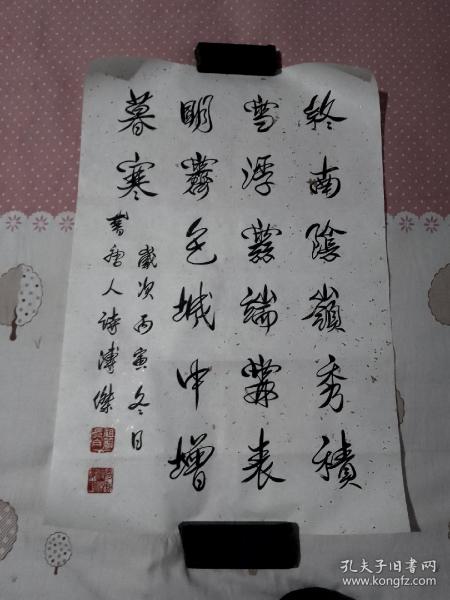 終南陰嶺秀積
雪浮雲端林表
明霽色城中增
暮寒
歲次丙寅冬日
書唐人詩溥傑
孔夫子旧书网
www.kongfz.com